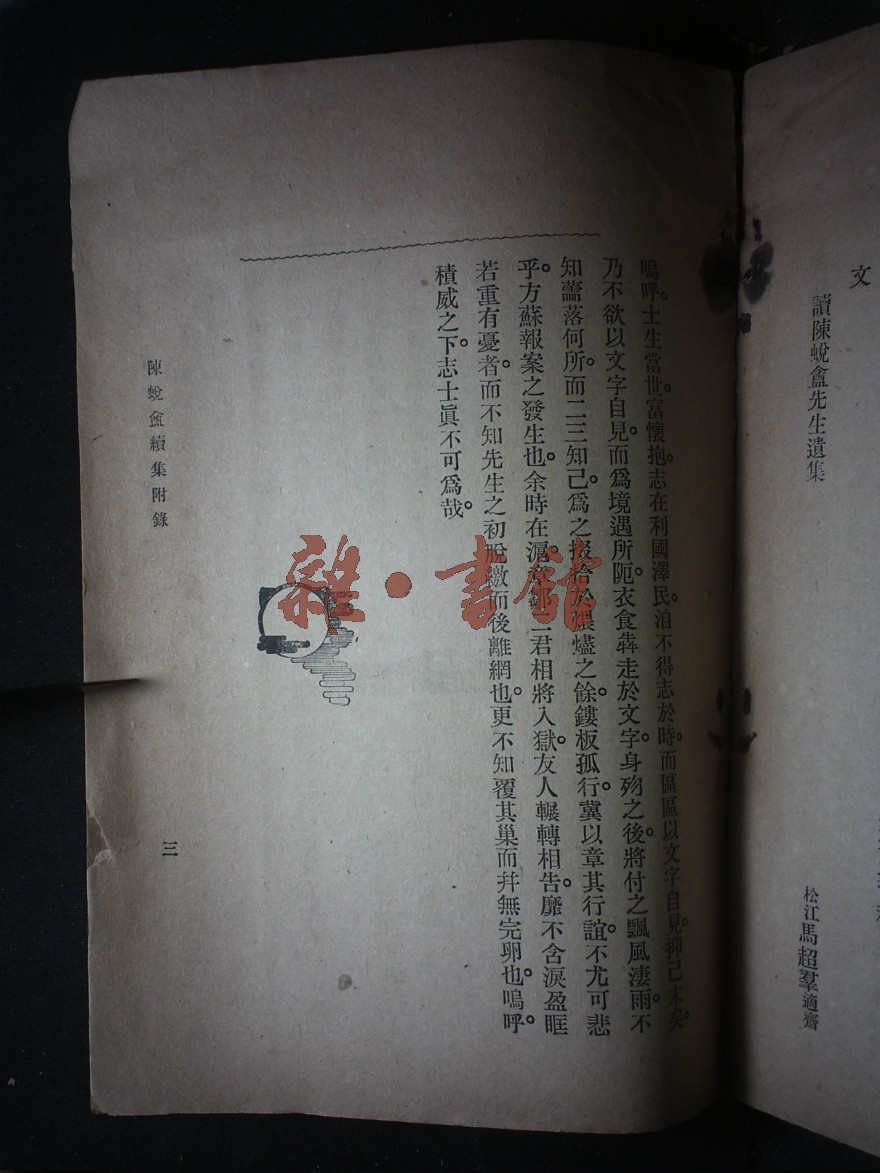 文
讀陳蛻盦先生遺集
松江馬超羣適齋
嗚呼。士生當世。富懷抱。志在利國澤民。洎不得志於時。而區區以文字自見。抑已末矣。
乃不欲以文字自見。而爲境遇所阨。衣食犇走於文字。身歿之後。將付之飄風淒雨。不
知蘦落何所。而二三知己。爲之掇拾於煨燼之餘。鏤板孤行。冀以章其行誼。不尤可悲
乎。方蘇報案之發生也。余時在滬。章鄒二君相將入獄。友人輾轉相告。靡不含淚盈眶
若重有憂者。而不知先生之初脫繳而後離網也。更不知覆其巢而幷無完卵也。嗚呼。
積威之下。志士眞不可爲哉。
陳蛻盦續集附錄
三
雜·書館